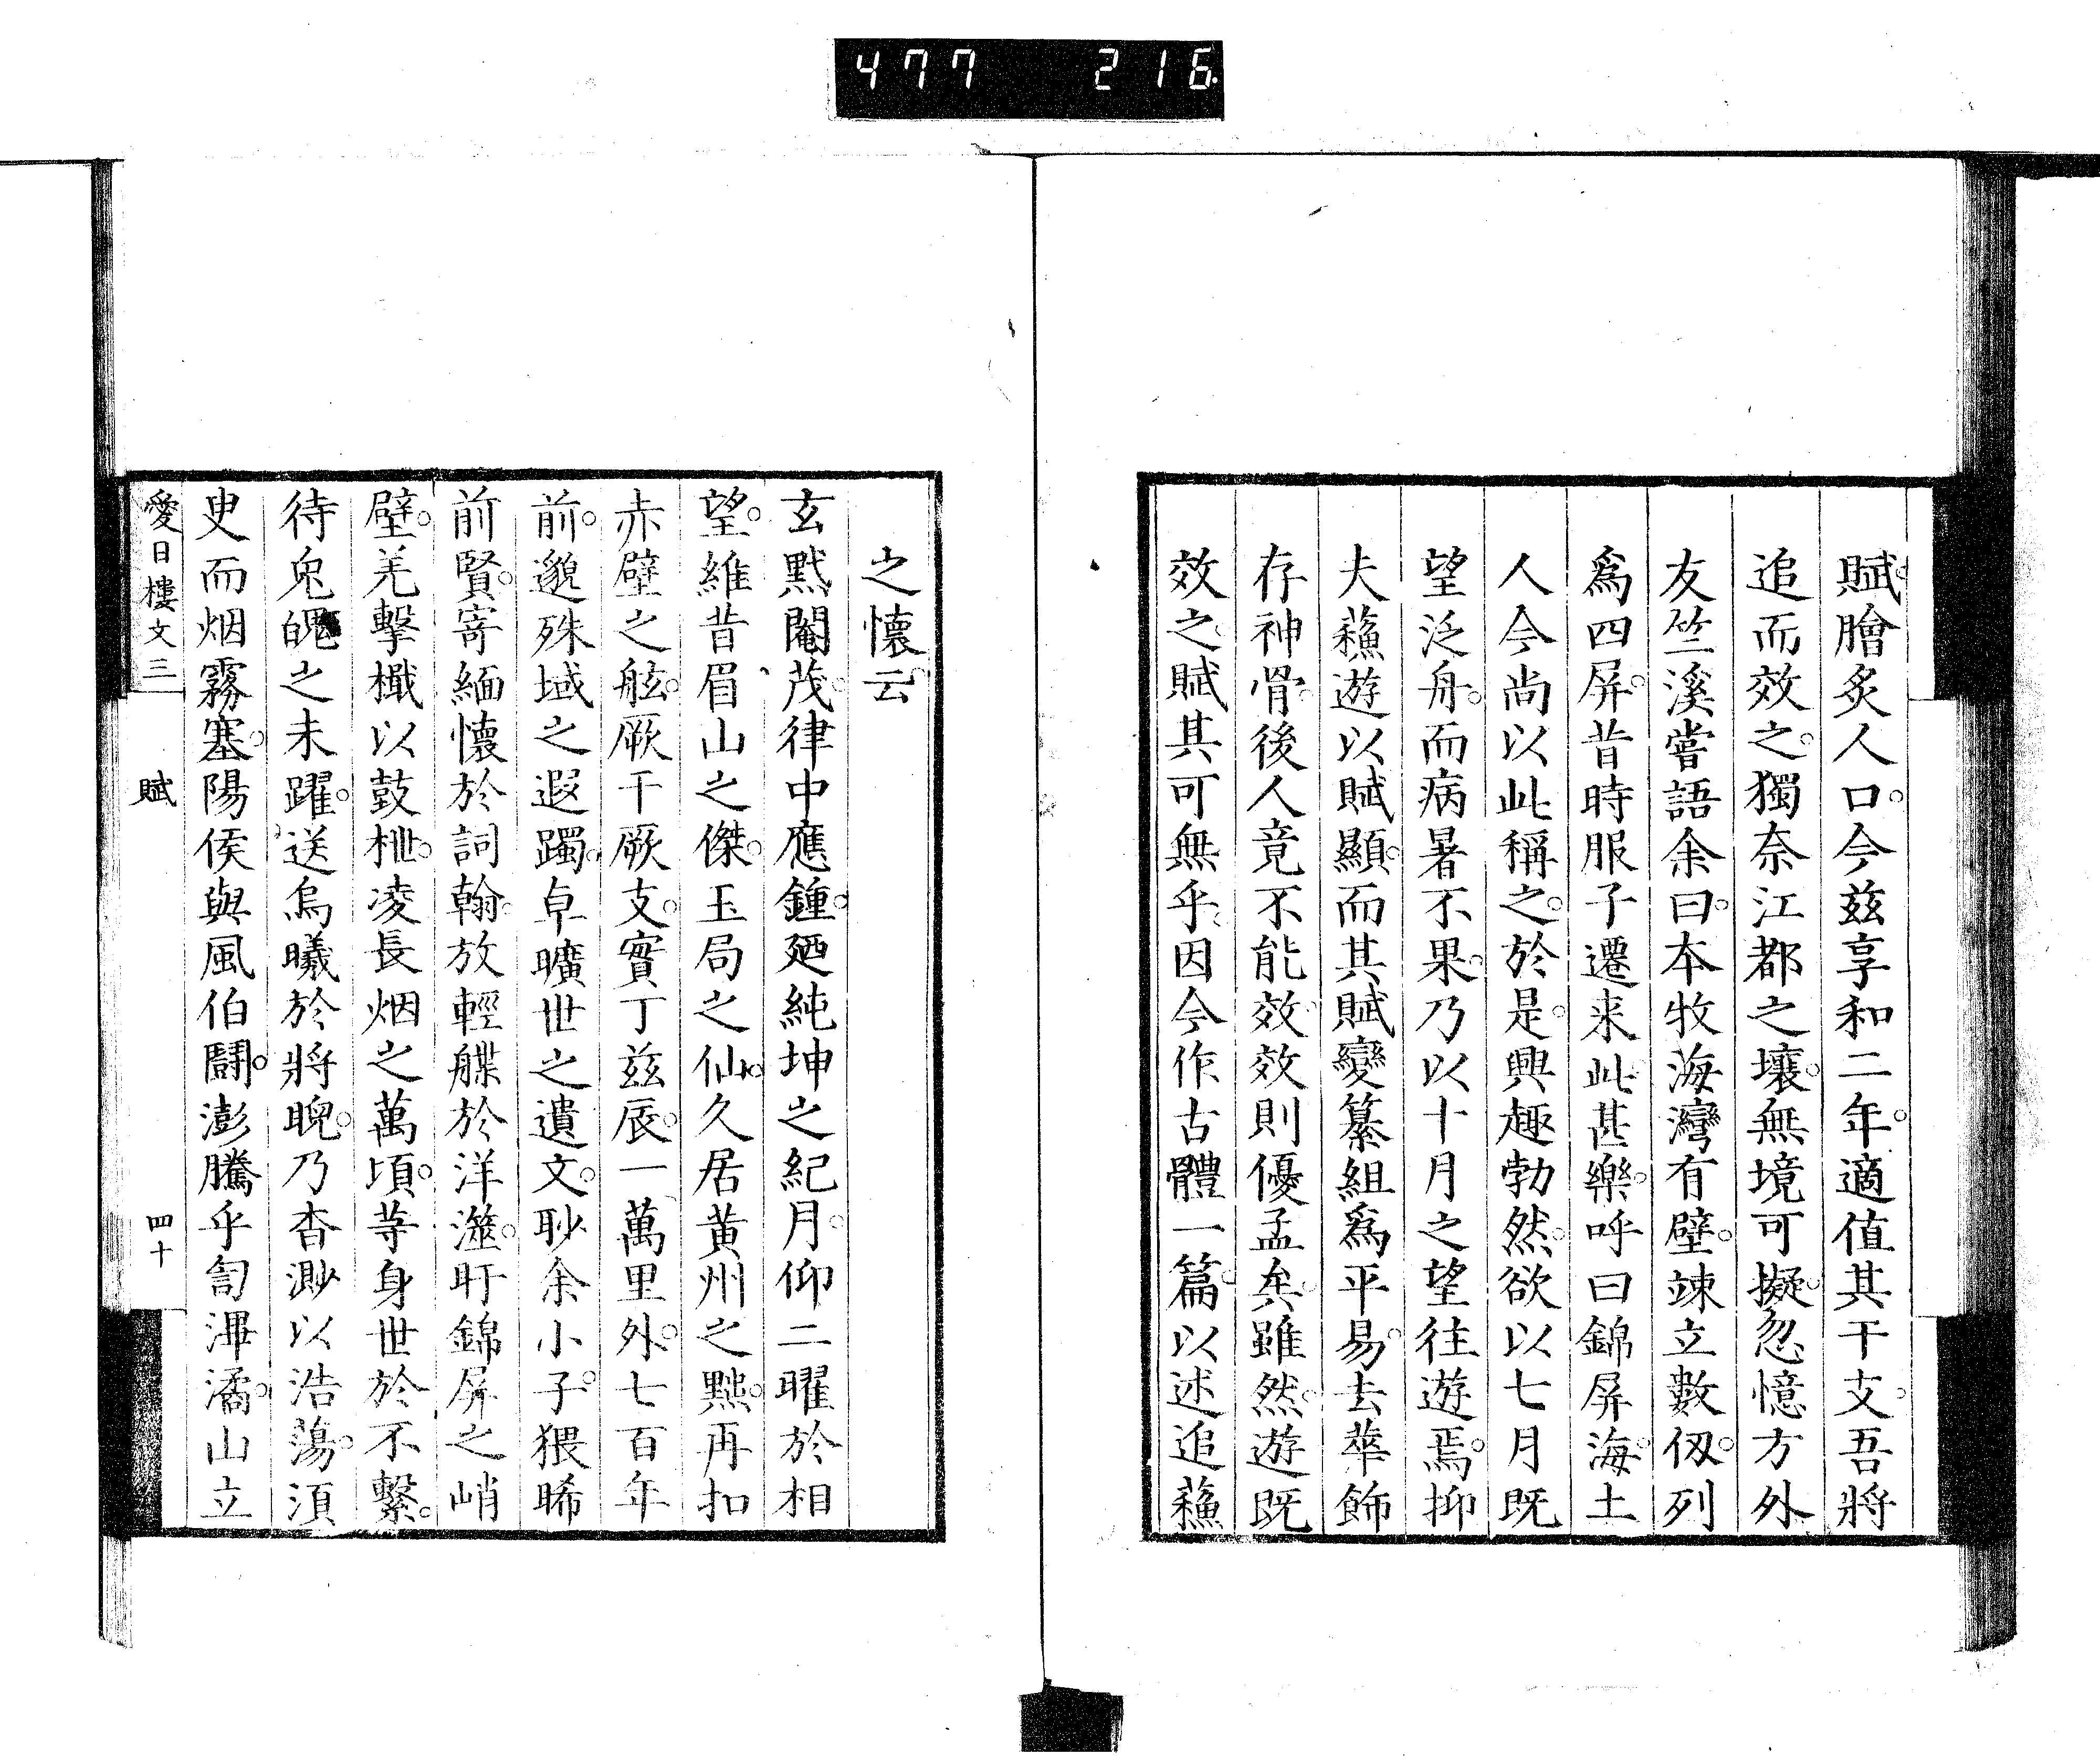 477 216
賦。膾炙人口。今茲享和二年。適值其干支。吾將
追而效之。獨奈江都之壤。無境可擬。忽憶方外
友竺溪嘗語余曰。本牧海灣有壁。竦立數仭。列
爲四屏。昔時服子遷来此甚樂。呼曰錦屏。海土
人今尚以此稱之。於是。興趣勃然。欲以七月既
望泛舟。而病暑不果。乃以十月之望往遊焉。抑
夫蘓遊以賦顯。而其賦變纂組爲平易。去華飾
存神骨。後人竟不能效。效則優孟矣。雖然。遊既
效之。賦其可無乎。因今作古體一篇。以述追蘓
之懷。云
玄黙閹茂。律中應鍾。廼純坤之紀月。仰二曜於相
望。維昔眉山之傑。玉局之仙。久居黄州之黜。再扣
赤壁之舷。厥干厥支。實丁茲辰。一萬里外。七百年
前。邈殊域之遐躅。卓曠世之遺文。眇余小子。猥睎
前賢。寄緬懷於詞翰。放輕艓於洋澨。盱錦屏之峭
壁。羌擊檝以鼓枻。凌長烟之萬頃。等身世於不繫。
待兔魄之未躍。送烏曦於將睨。乃杳渺以浩蕩。湏
臾而烟霧塞。陽侯與風伯鬪。澎騰乎訇渾潏。山立
愛日樓文三 賦 四十